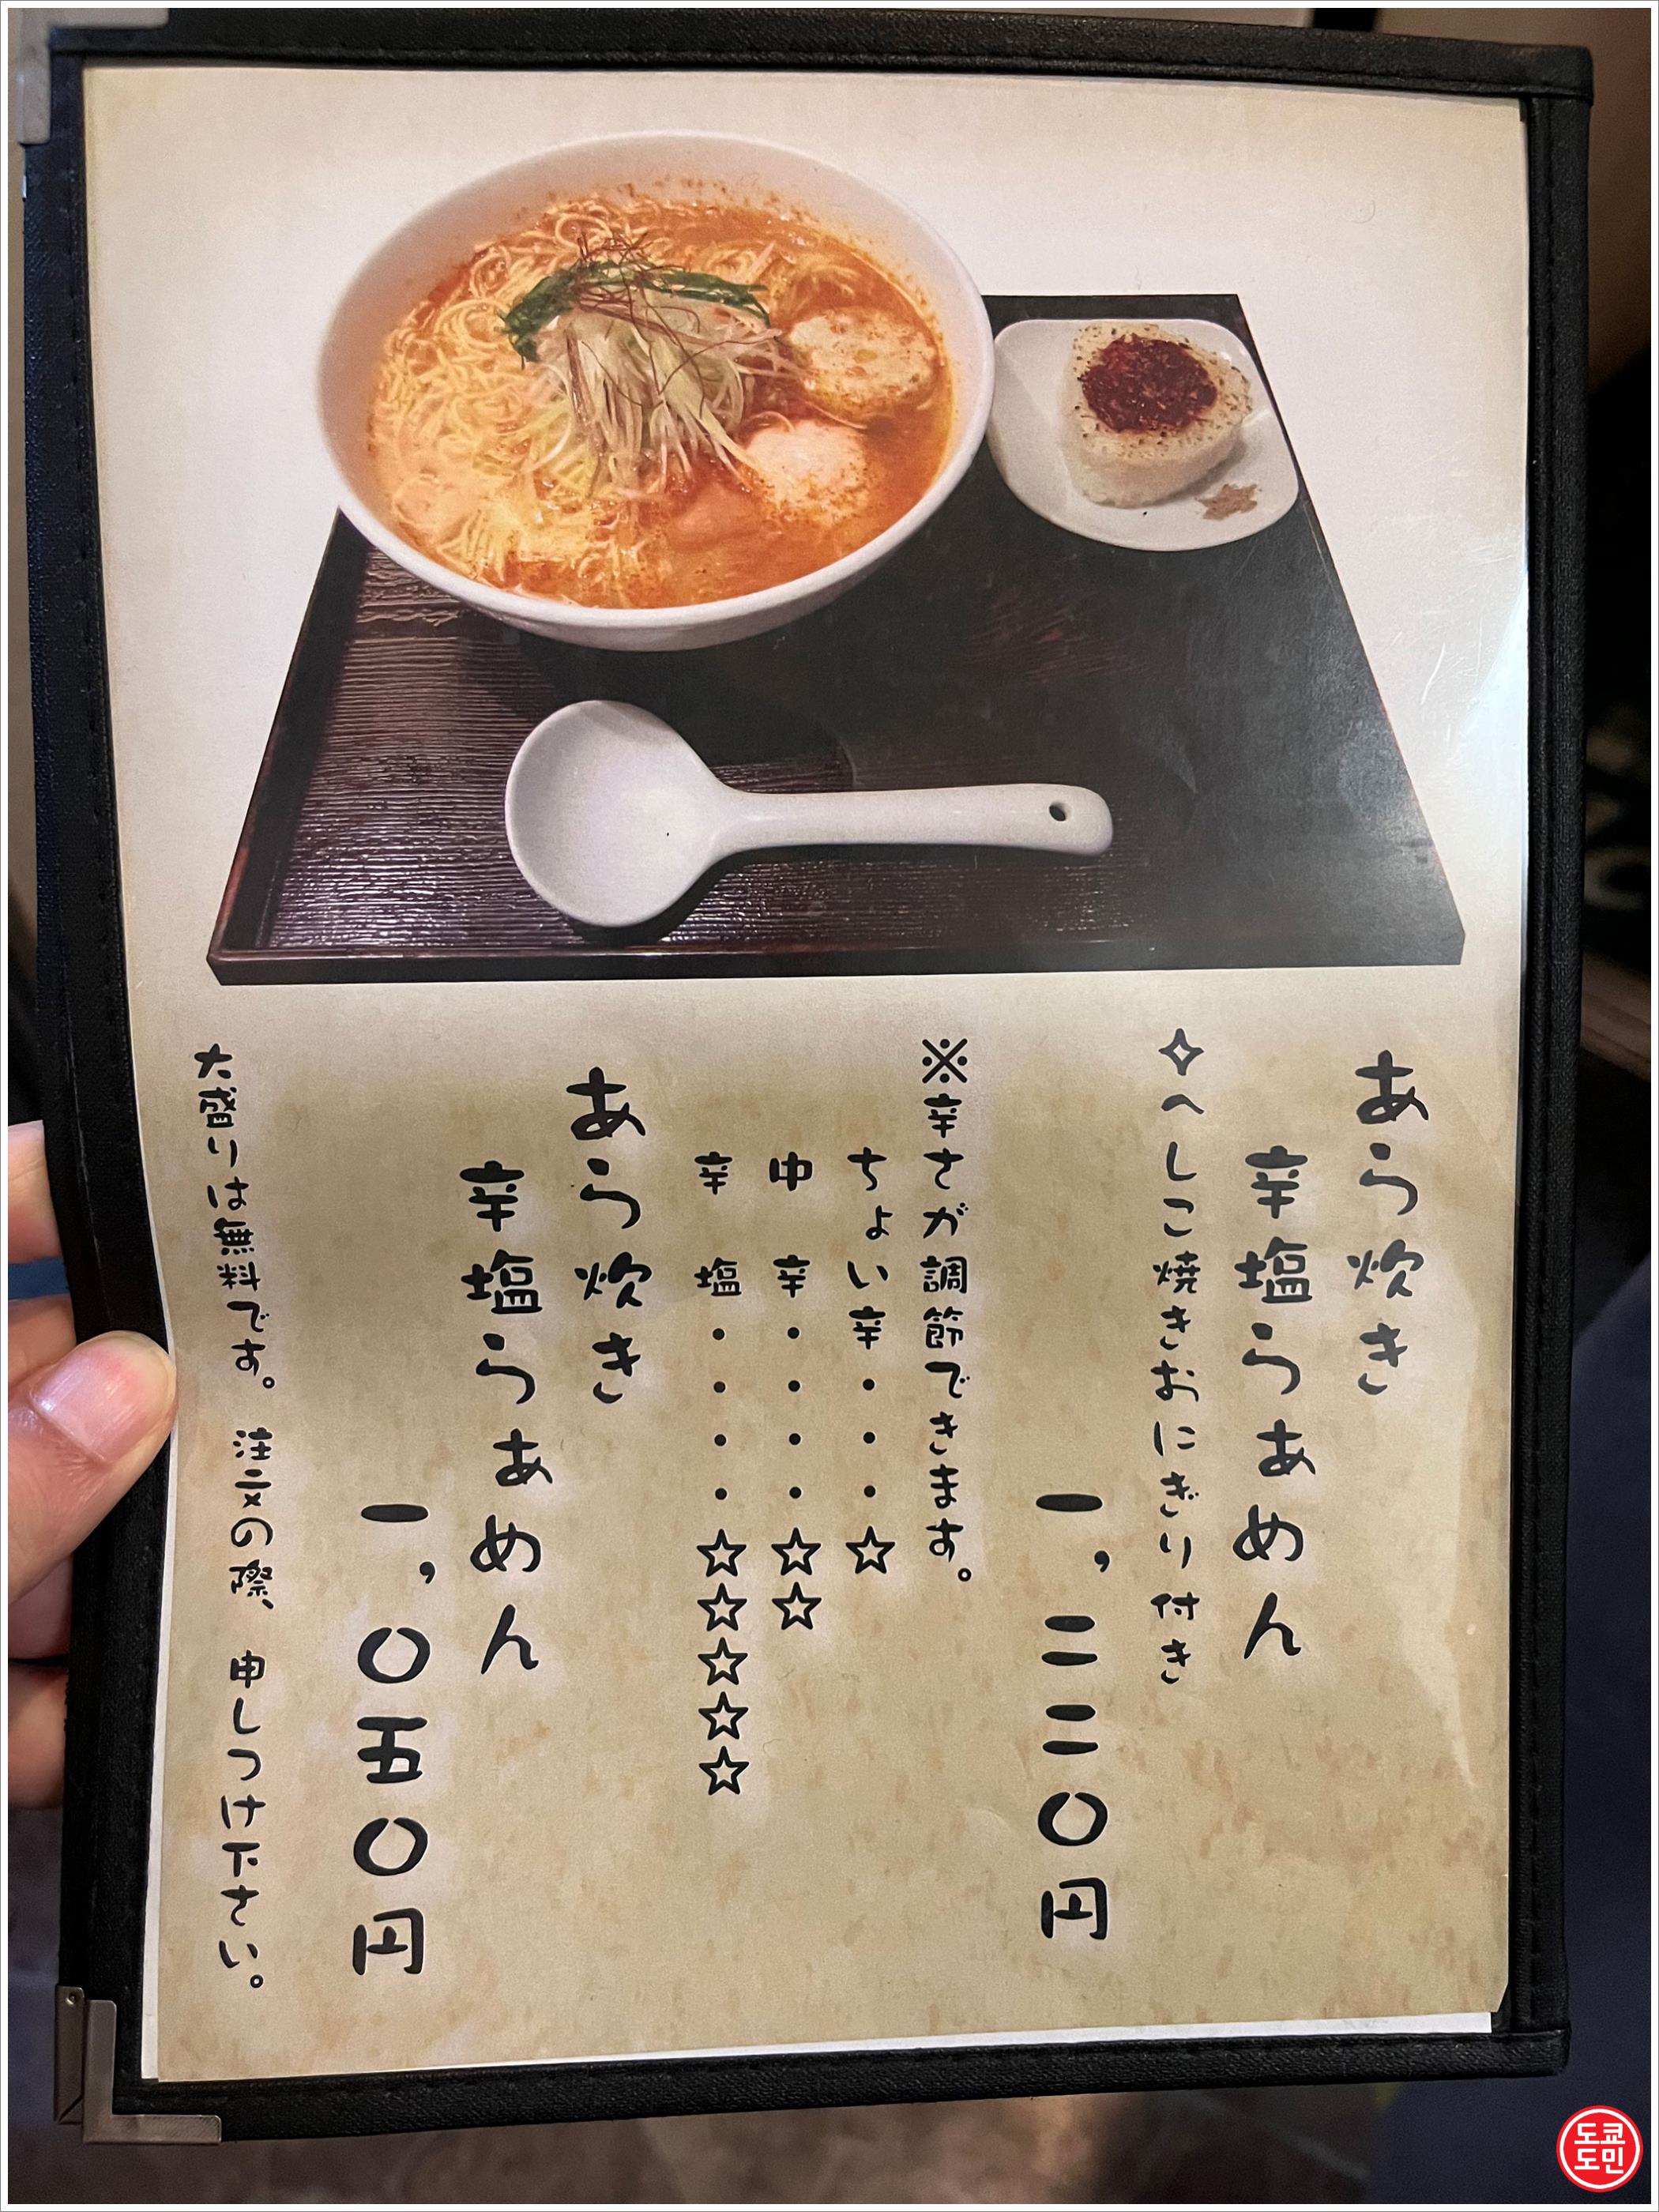 あら炊き
辛塩らぁめん
✧へしこ焼きおにぎり付き
一,二二〇円
※辛さが調節できます。
ちょい辛・・・・☆
中辛・・・・☆☆
辛塩・・・・☆☆☆☆☆
あら炊き
辛塩らぁめん
一,〇五〇円
大盛りは無料です。注文の際、申しつけ下さい。
도쿄
도민